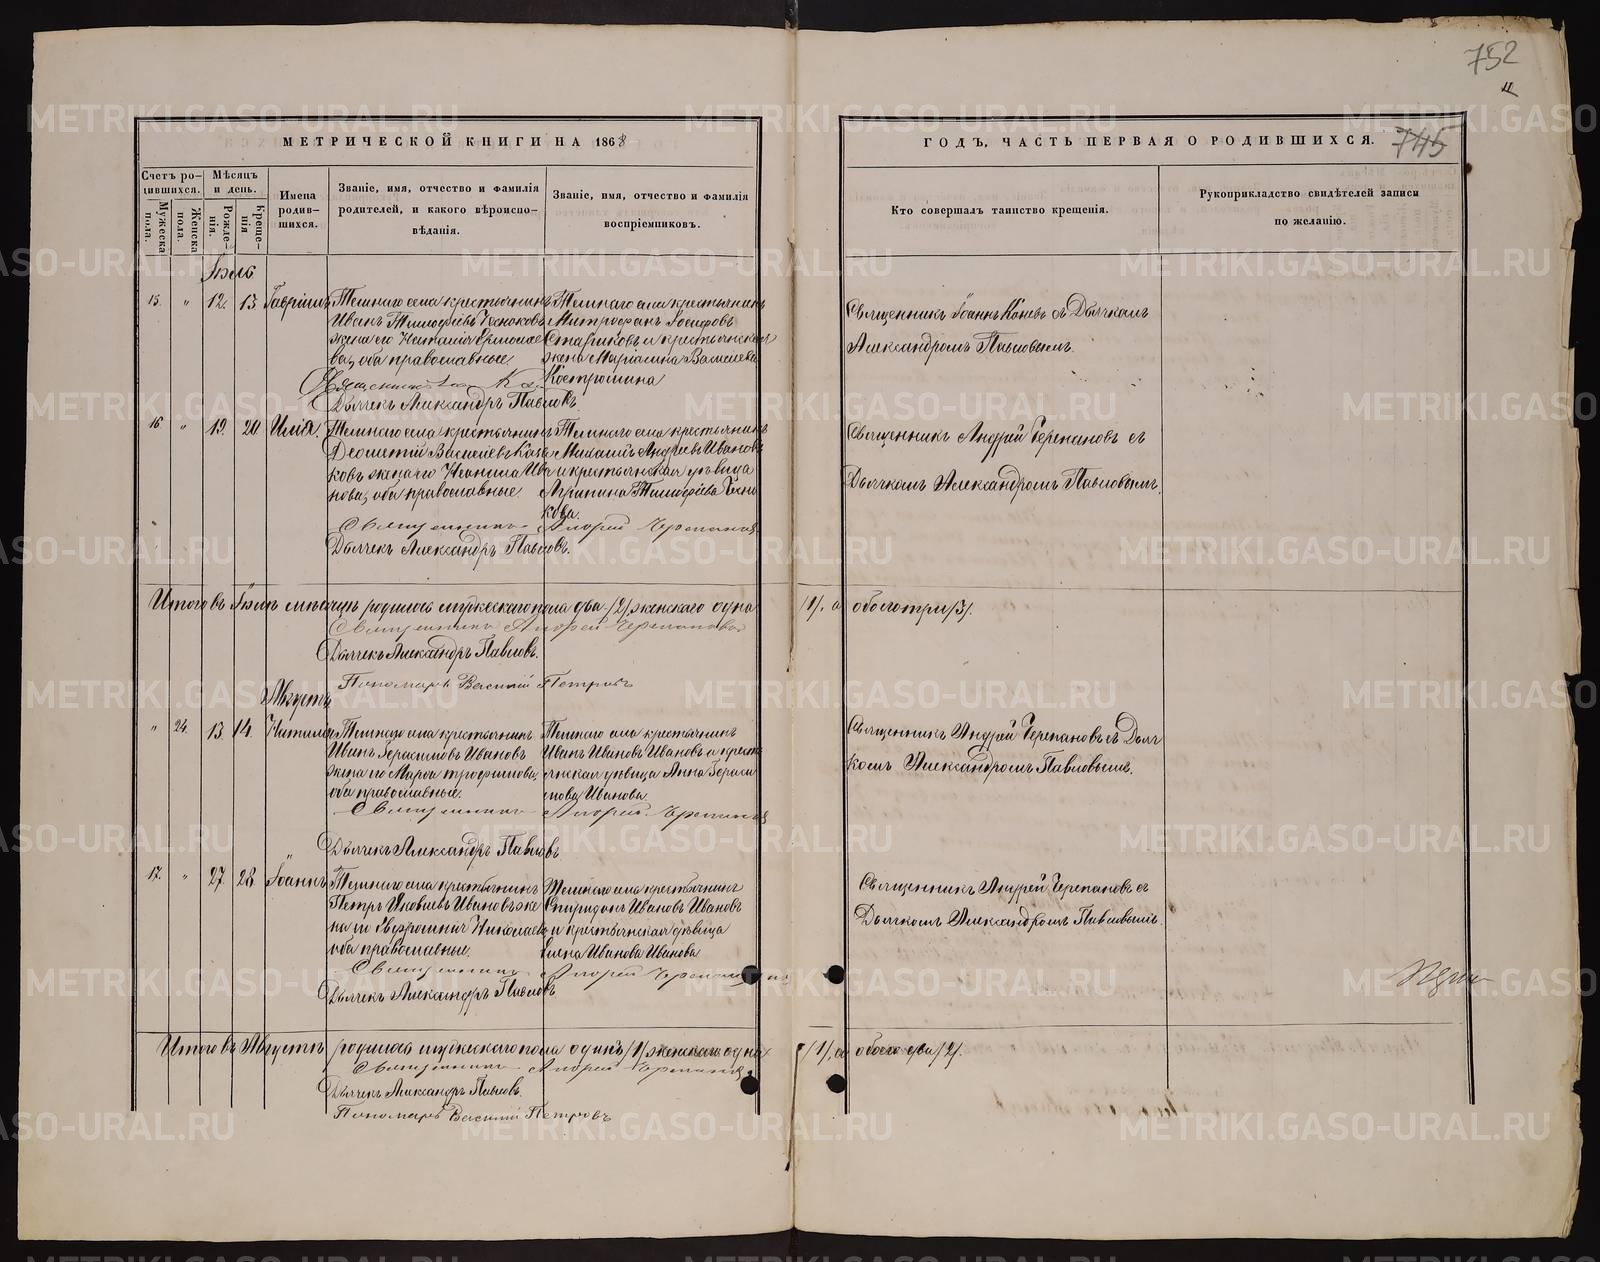 752
745
МЕТРИЧЕСКОЙ КНИГИ НА 1868
ГОДЪ, ЧАСТЬ ПЕРВАЯ О РОДИВШИХСЯ.
Счетъ ро-
дившихся.
Мужеска
пола.
Женска
пола.
Мѣсяцъ
и день.
Рожде-
нія.
Креще-
нія
Имена
родив-
шихся.
Званіе, имя, отчество и фамилія
родителей, и какого вѣроиспо-
вѣданія.
Званіе, имя, отчество и фамилія
воспріемниковъ.
Кто совершалъ таинство крещенія.
Рукоприкладство свидѣтелей записи
по желанію.
Іюль
15. " 12. 13 Гавріилъ
села крестьянинъ
Иванъ Тимофѣевъ
жена его Наталія
ва, оба православные
села крестьянинъ
Митрофанъ Іосифовъ
Стариковъ и крестьянская
жена Маріамна Васильева
Костромина
Дьячекъ Александръ Павловъ.
Священникъ Іоаннъ съ Дьячкомъ
Александромъ Павловымъ.
16 " 19. 20 Илія.
села крестьянинъ
Васильевъ
жена его
нова, оба православные
села крестьянинъ
Андреевъ Иванов
и крестьянская дѣвица
Агрипина Тимофѣева
кова.
Священникъ Андрей Черепановъ
Дьячекъ Александръ Павловъ.
Священникъ Андрей Черепановъ съ
Дьячкомъ Александромъ Павловымъ.
Итого въ Іюлѣ мѣсяцѣ родилось мужескаго пола два /2/, женскаго одна /1/, а обоего три /3/.
Священникъ Андрей Черепановъ
Дьячекъ Александръ Павловъ.
Пономарь Василій Петровъ
Августъ
" 24. 13 14. Наталія
села крестьянинъ
Иванъ Герасимовъ Ивановъ
жена его Марѳа Трофимова,
оба православные.
села крестьянинъ
Иванъ Ивановъ Ивановъ и кресть
янская дѣвица Анна Гераси
мова Иванова.
Священникъ Андрей Черепановъ
Дьячекъ Александръ Павловъ
Священникъ Андрей Черепановъ съ Дьяч
комъ Александромъ Павловымъ.
17. " 27. 28. Іоаннъ
села крестьянинъ
Петръ Яковлевъ Ивановъ же
на его Евфросинія Николаева
оба православные.
села крестьянинъ
Спиридонъ Ивановъ Ивановъ
и крестьянская дѣвица
Елена Иванова Иванова
Священникъ Андрей Черепановъ
Дьячекъ Александръ Павловъ
Священникъ Андрей Черепановъ съ
Дьячкомъ Александромъ Павловымъ.
Итого въ Августѣ родилось мужескаго пола одинъ /1/ женскаго одна /1/, а обоего два /2/.
Священникъ Андрей Черепановъ
Дьячекъ Александръ Павловъ.
Пономарь Василій Петровъ
METRIKI.GASO-URAL.RU